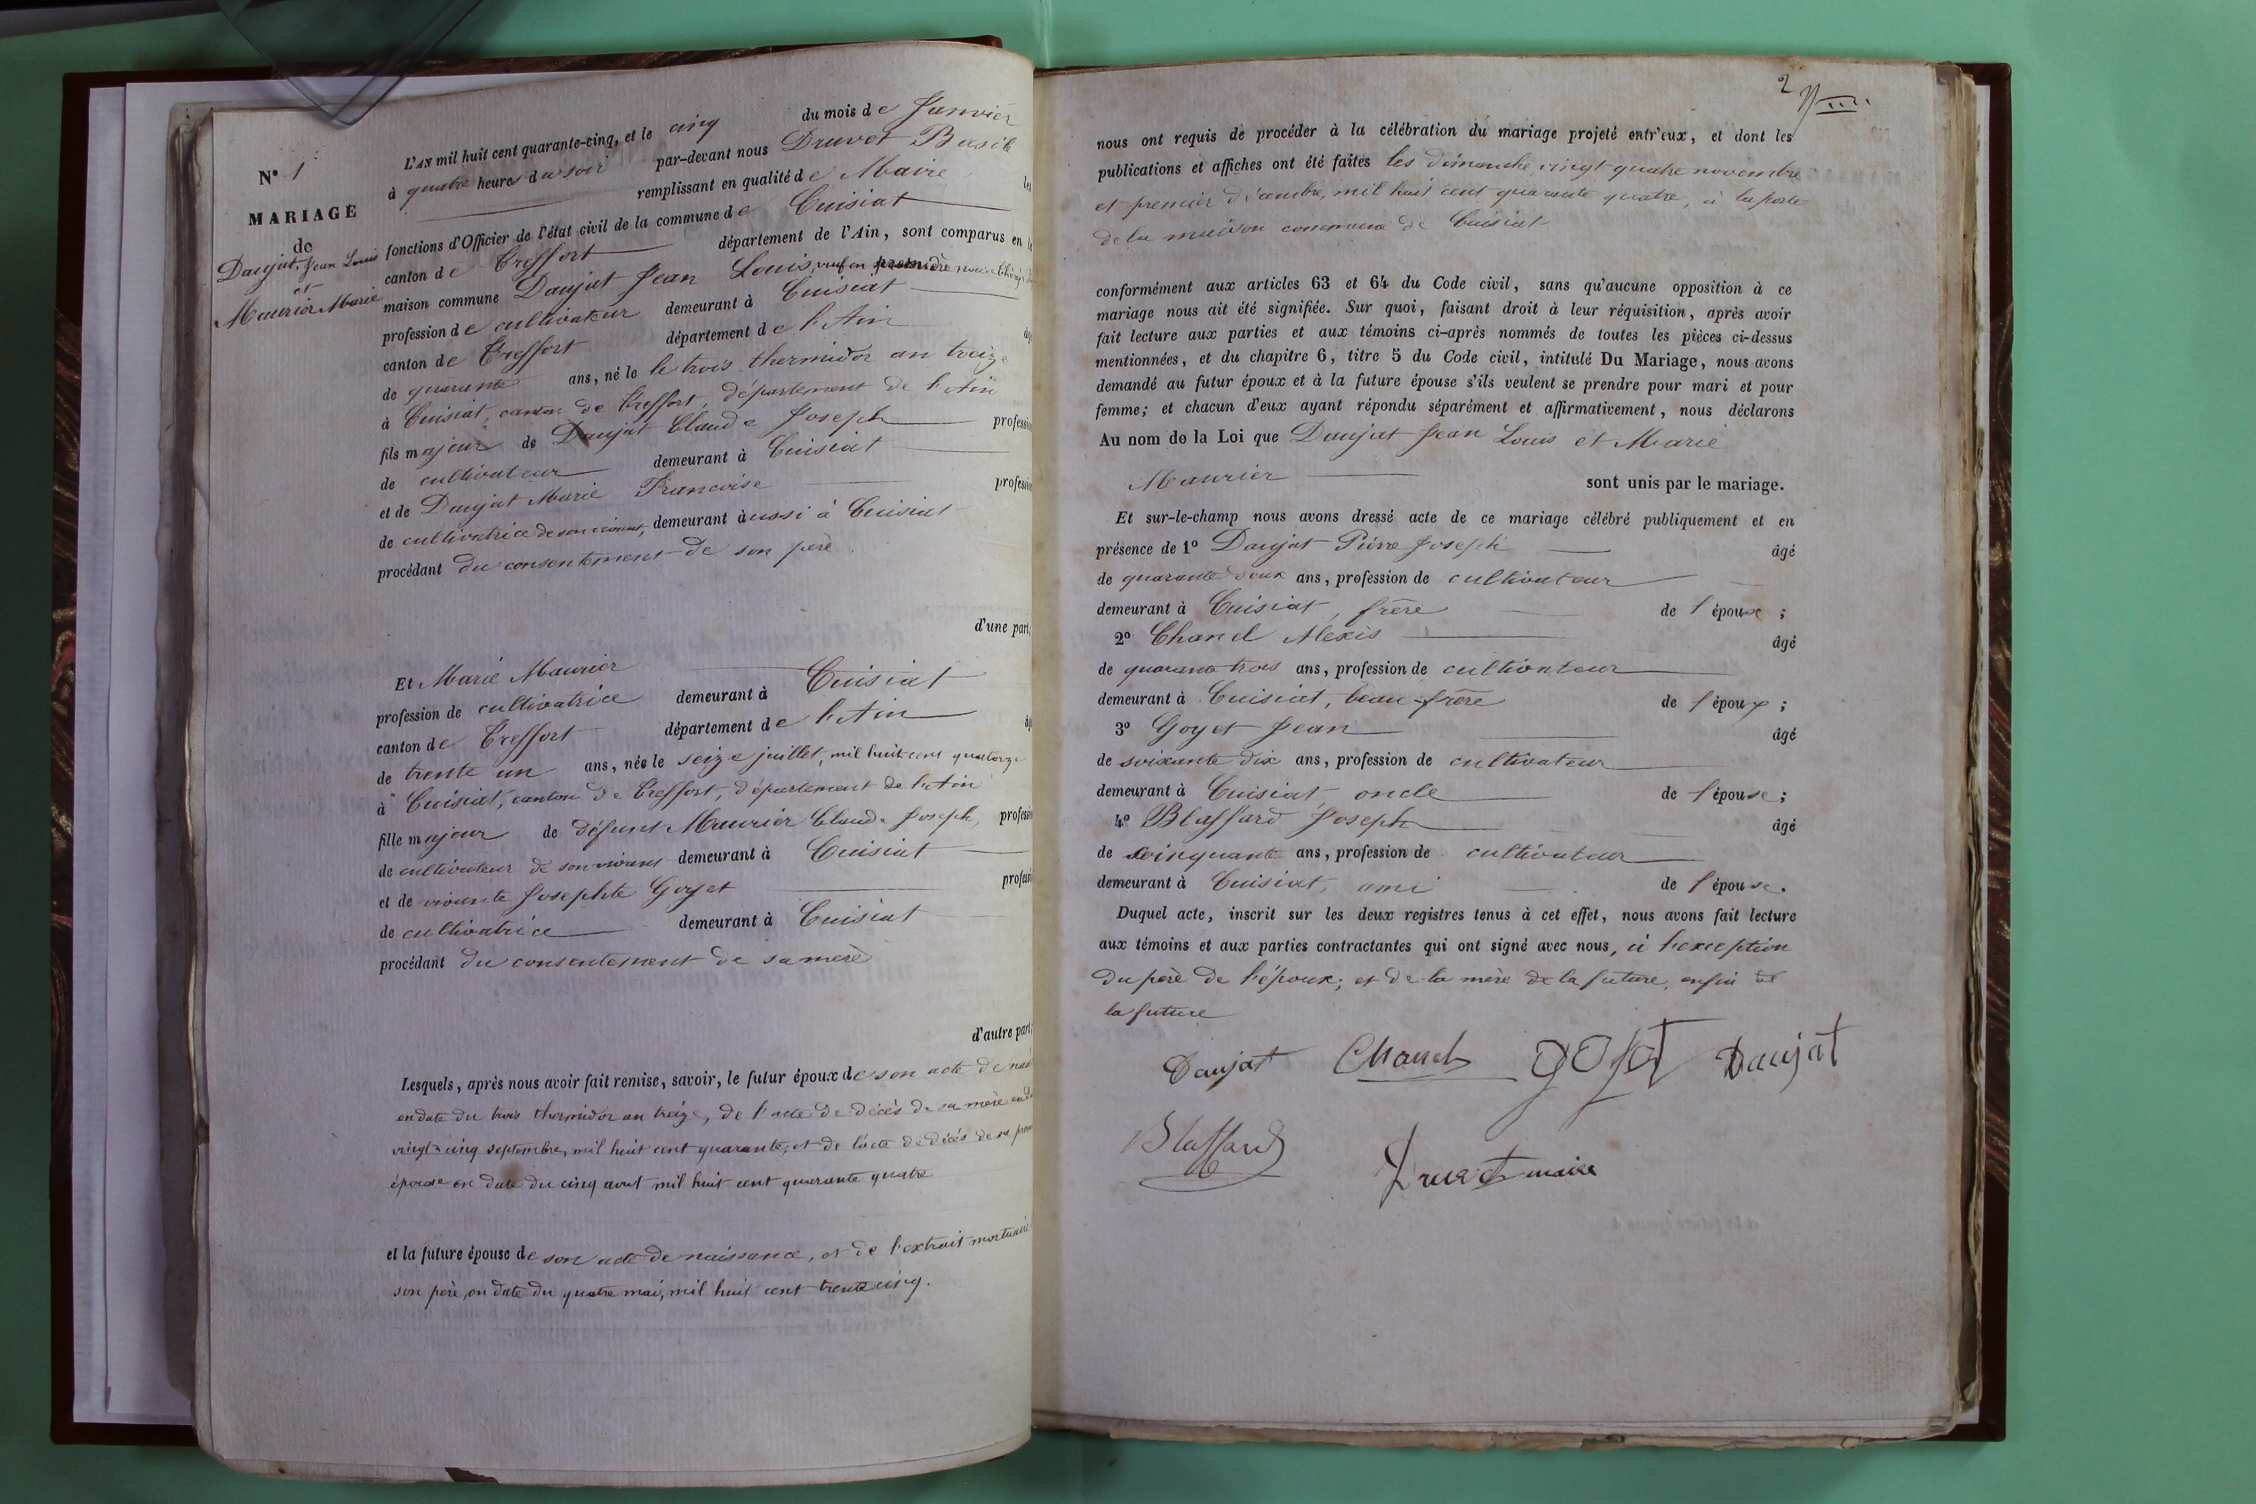 N° 1
MARIAGE
de
Daujat, Jean Louis
et
Maurier Marie
L'AN mil huit cent quarante-cinq, et le cinq du mois de Janvier
à quatre heures du soir par-devant nous Druvet Basile
remplissant en qualité de Maire les
fonctions d'Officier de l'état civil de la commune de Cuisiat
canton de Treffort département de l'Ain, sont comparus en la
maison commune Daujat Jean Louis, veuf en
profession de cultivateur demeurant à Cuisiat
canton de Treffort département de l'Ain
de quarante ans, né le le trois thermidor an treize
à Cuisiat, canton de Treffort, département de l'Ain
fils majeur de Daujat Claude Joseph profession
de cultivateur demeurant à Cuisiat
et de Daujat Marie Francoise profession
de cultivatrice de son vivant, demeurant aussi à Cuisiat
procédant du consentement de son père
d'une part,
Et Marie Maurier
profession de cultivatrice demeurant à Cuisiat
canton de Treffort département de l'Ain
de trente un ans, née le seize juillet, mil huit cent quatorze
à Cuisiat, canton de Treffort, département de l'Ain
fille majeur de défunt Maurier Claude Joseph, profession
de cultivateur de son vivant demeurant à Cuisiat
et de vivante Josephte Goyet profession
de cultivatrice demeurant à Cuisiat
procédant du consentement de sa mère
d'autre part;
Lesquels, après nous avoir fait remise, savoir, le futur époux de son acte de
en date du trois thermidor an treize, de l'acte de décès de sa mère en
vingt cinq septembre, mil huit cent quarante, et de l'acte de décès de sa
épouse en date du cinq aout mil huit cent quarante quatre
et la future épouse de son acte de naissance, et de l'extrait mortuaire
son père, en date du quatre mai, mil huit cent trente cinq.
2
nous ont requis de procéder à la célébration du mariage projeté entr'eux, et dont les
publications et affiches ont été faites les dimanche vingt quatre novembre
et premier décembre, mil huit cent quarante quatre, à la porte
de la maison commune de Cuisiat
conformément aux articles 63 et 64 du Code civil, sans qu'aucune opposition à ce
mariage nous ait été signifiée. Sur quoi, faisant droit à leur réquisition, après avoir
fait lecture aux parties et aux témoins ci-après nommés de toutes les pièces ci-dessus
mentionnées, et du chapitre 6, titre 5 du Code civil, intitulé Du Mariage, nous avons
demandé au futur époux et à la future épouse s'ils veulent se prendre pour mari et pour
femme; et chacun d'eux ayant répondu séparément et affirmativement, nous déclarons
Au nom de la Loi que Daujat Jean Louis et Marie
Maurier sont unis par le mariage.
Et sur-le-champ nous avons dressé acte de ce mariage célébré publiquement et en
présence de 1° Daujat Pierre Joseph âgé
de quarante deux ans, profession de cultivateur
demeurant à Cuisiat, frère de l'épouse;
2° Chanel Alexis âgé
de quarante trois ans, profession de cultivateur
demeurant à Cuisiat, beau-frère de l'époux;
3° Goyet Jean âgé
de soixante dix ans, profession de cultivateur
demeurant à Cuisiat, oncle de l'épouse;
4° Blaffard Joseph âgé
de cinquante ans, profession de cultivateur
demeurant à Cuisiat, ami de l'épouse.
Duquel acte, inscrit sur les deux registres tenus à cet effet, nous avons fait lecture
aux témoins et aux parties contractantes qui ont signé avec nous, à l'exception
du père de l'époux; et de la mère de la future, enfin de
la future
Daujat Chanel goyet Daujat
Blaffard
Druvet maire